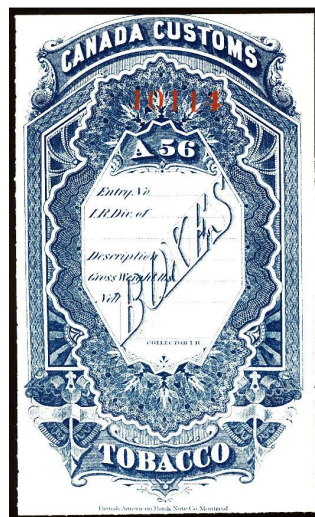 CANADA CUSTOMS
10114
A 56
Entry. No.
I.R. Div. of
BOXES
Description
Gross Weight lbs.
Nett
COLLECTOR I.R.
TOBACCO
British American Bank Note Co. Montreal